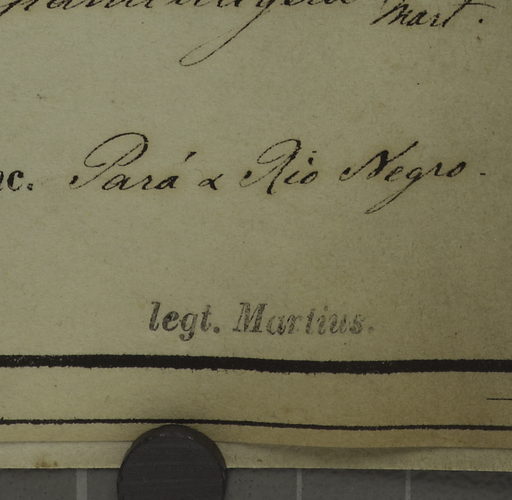 Mart.
nc. Pará & Rio Negro.
legt. Martius.